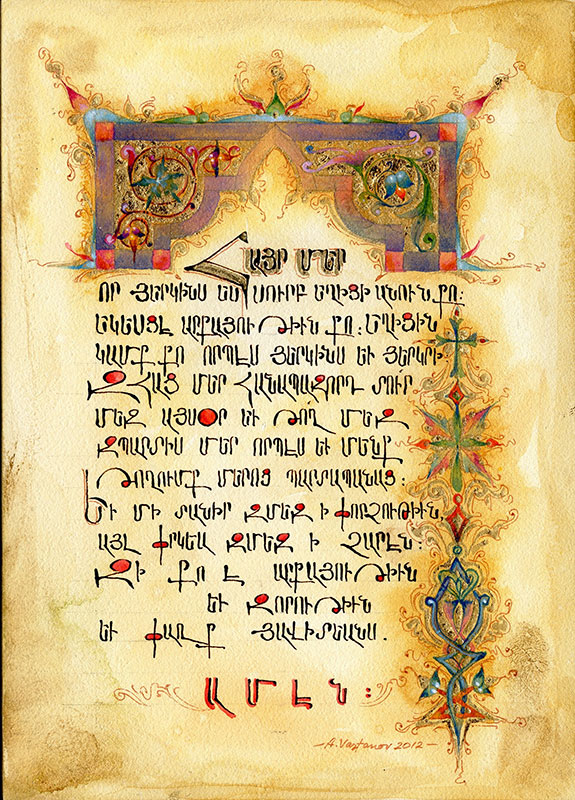 Հայր մեր
որ յերկինս ես, սուրբ եղիցի անուն քո:
Եկեսցէ արքայութիւն քո: Եղիցին
կամք քո որպէս յերկինս եւ յերկրի
ԶՀաց մեր հանապազորդ տուր
մեզ այսօր եւ թող մեզ
զպարտիս մեր որպէս եւ մենք
թողումք մերոց պարտապանաց:
Եւ մի տանիր զմեզ ի փորձութիւն,
այլ փրկեա զմեզ ի չարէն:
Զի քո է արքայութիւն
եւ զօրութիւն
եւ փառք յաւիտեանս.
ԱՄԷՆ:
A. Vartanov 2012